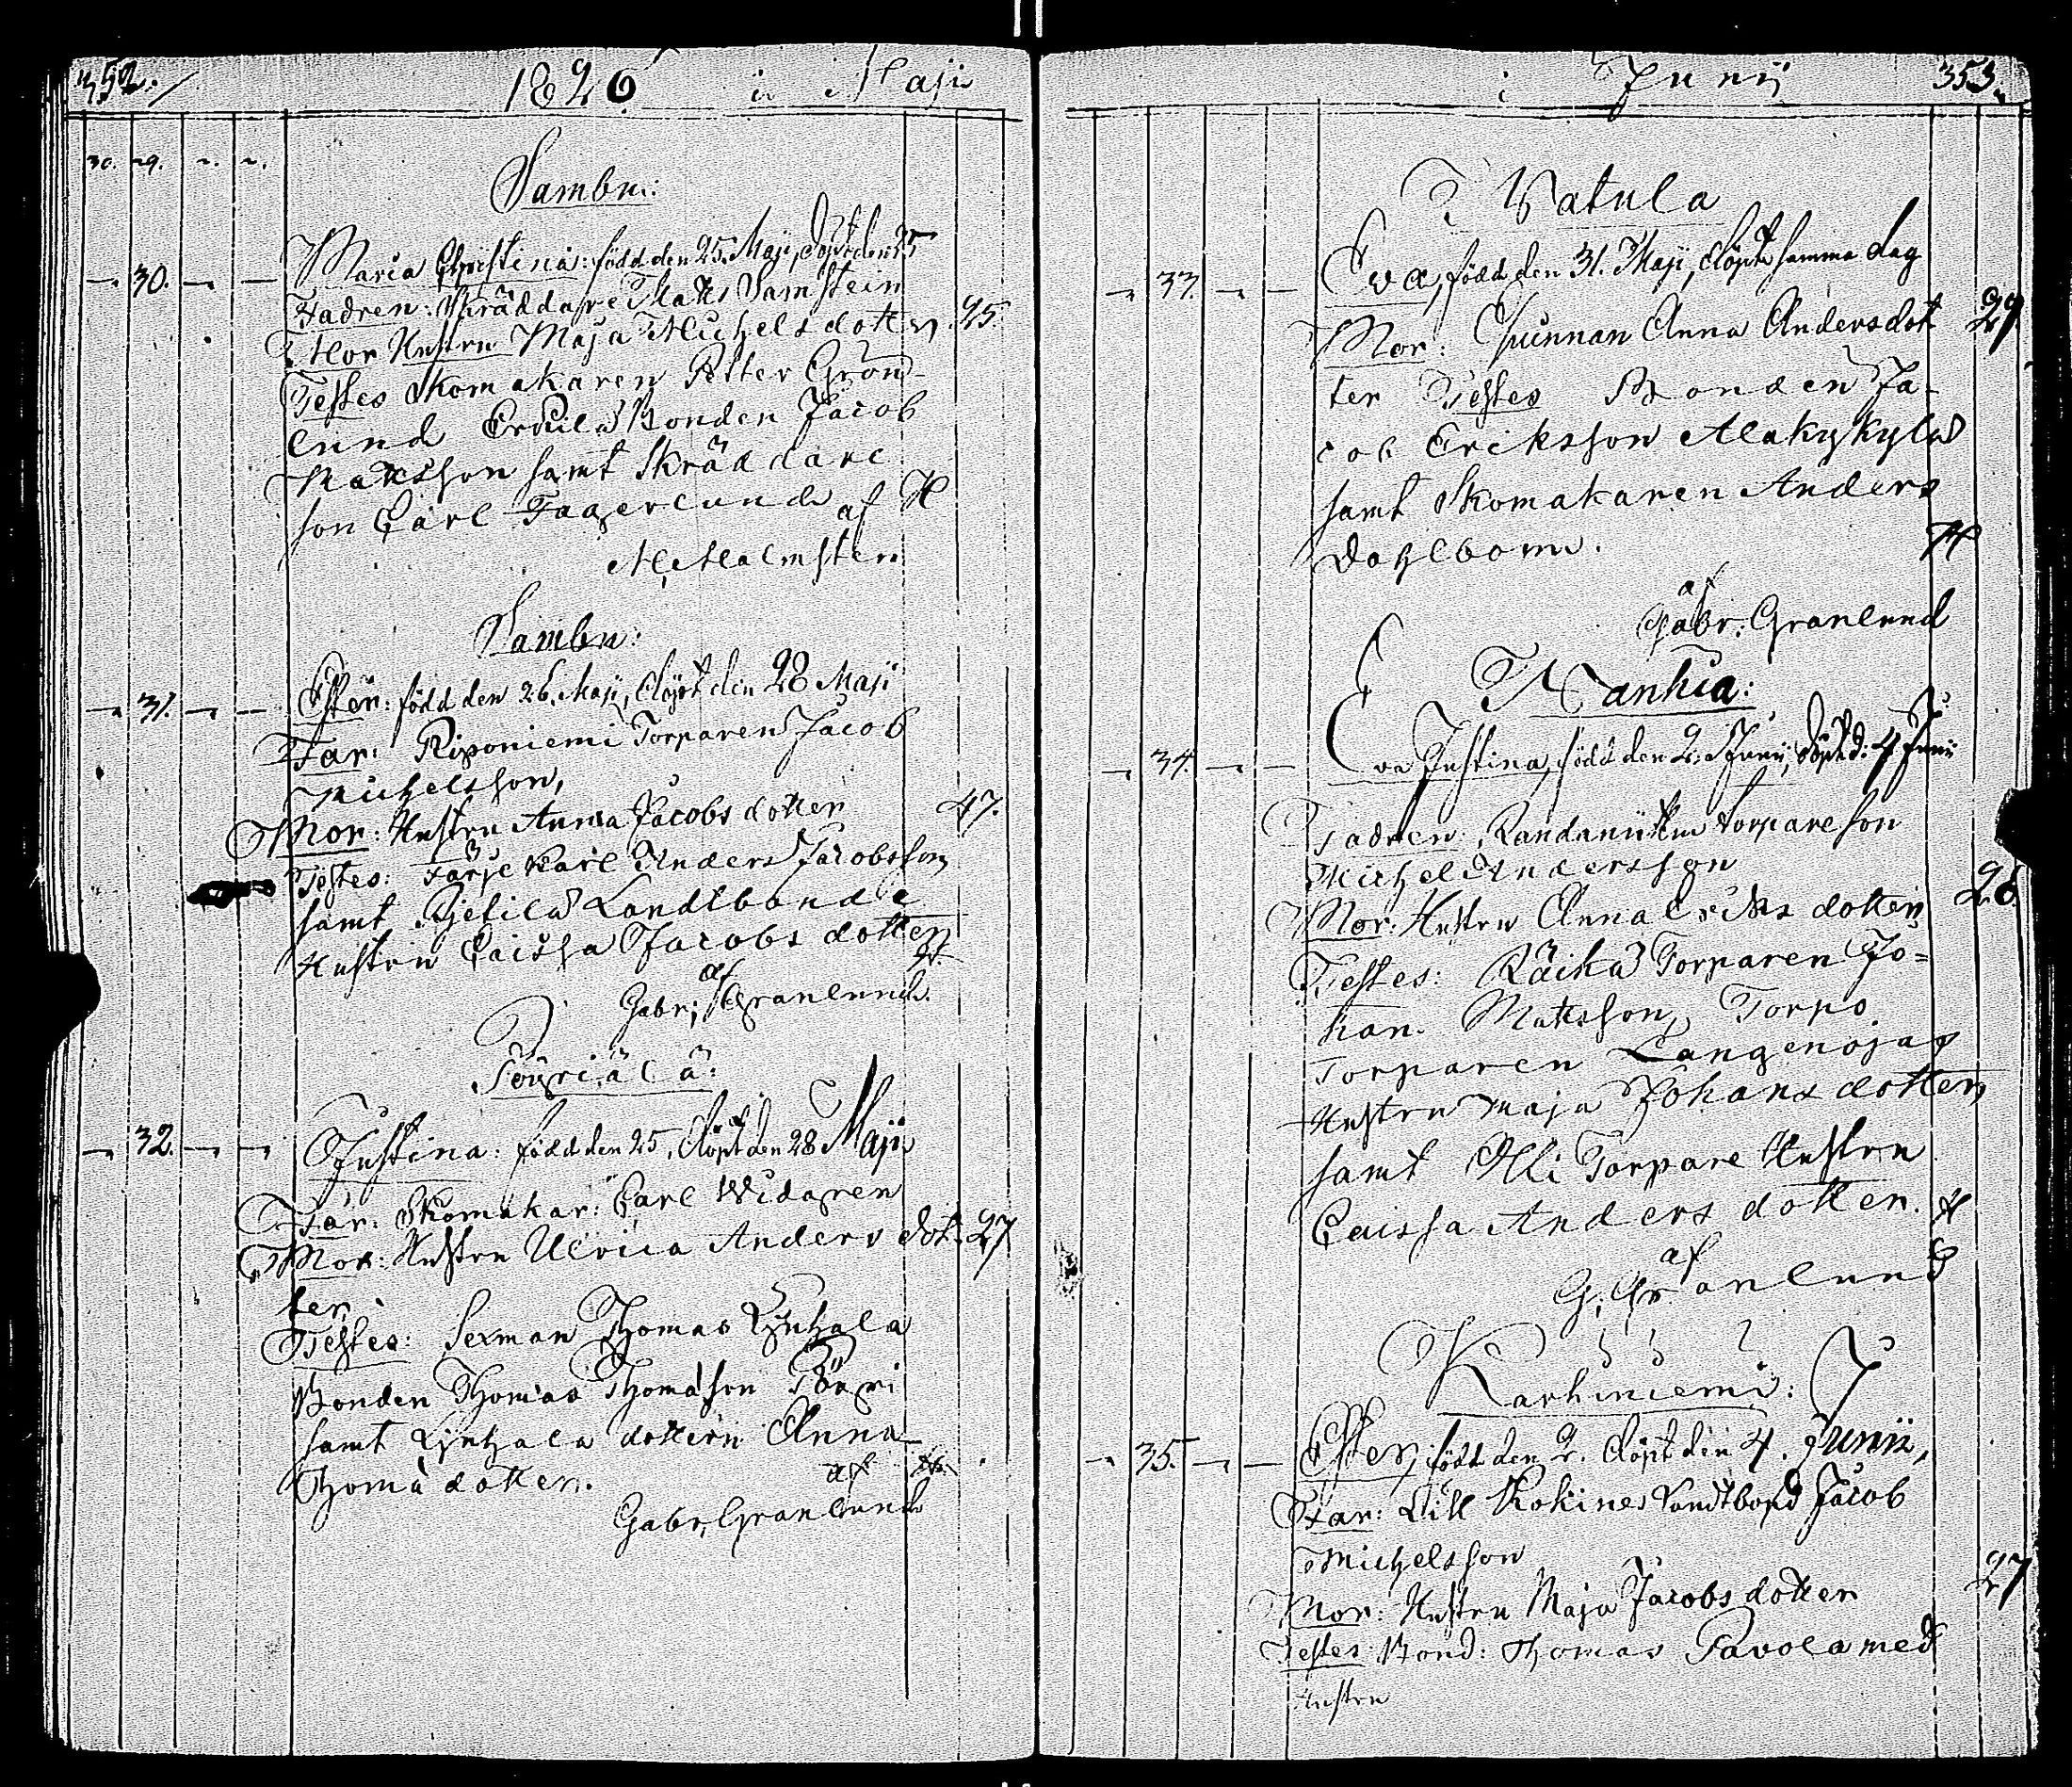 352.
1826 i Maji
30. 29. ~. ~.
Sambu:
Maria Christina: född den 25. Maji, döpt den 25
30.
Fadren: Skräddare Matts Samstein
Mor Hustru Maja Michelsdotter 25.
Testes Skomakaren Petter Grön-
lund Erkilä Bonden Jacob
Mattsson samt Skräddare
son Carl Fagerlund af H
M. Malmsten
Sambu:
31. Ester: född den 26. Maji, döpt den 28 Maji
Far: Riponiemi Torparen Jacob
Michelsson,
Mor: Hustru Anna Jacobsdotter 47.
Testes: Färje Karl Anders Jacobsson
samt Landtbonde
Hustru Caissa Jacobs dotter
af
Gabr. Granlund.
32. Justina: född den 25, döpt den 28 Maji
Far: Skomakar: Carl Widgren
Mor: Hustru Ulrica Anders dot- 27
ter
Testes: Sexman Thomas
Bonden Thomas Thomasson
samt dottern Anna
Thoma dotter. af
Gabr. Granlund
i Junii 353.
Watula
33. Eva, född den 31. Maji, döpt samma dag
Mor: Qvinnan Anna Andersdot 29
ter Testes Bonden Ja-
cob Eriksson Makykylä
samt Skomakaren Anders
Dahlbom. H
af
Gabr. Granlund
Wanhia:
34. Eva Justina, född den 2. Junii, döpt d: 4 Junii
Fadren: Torpareson
Michel Andersson
Mor: Hustru Anna Eriks dotter 26.
Testes: Räikä Torparen Jo=
han Mattsson, Torpo
Torparen Langenoja
Hustru Maja Johans dotter
samt Olli Torpare Hustru
Caissa Anders dotter. H
af
G. Granlund
Karhiniemi:
35. Ester, född den 2. döpt den 4. Junii,
Far: Lill Kokines Landtbond Jacob
Michelsson 27
Mor: Hustru Maja Jacobs dotter
Testes Bond: Thomas Pavola med
Hustru